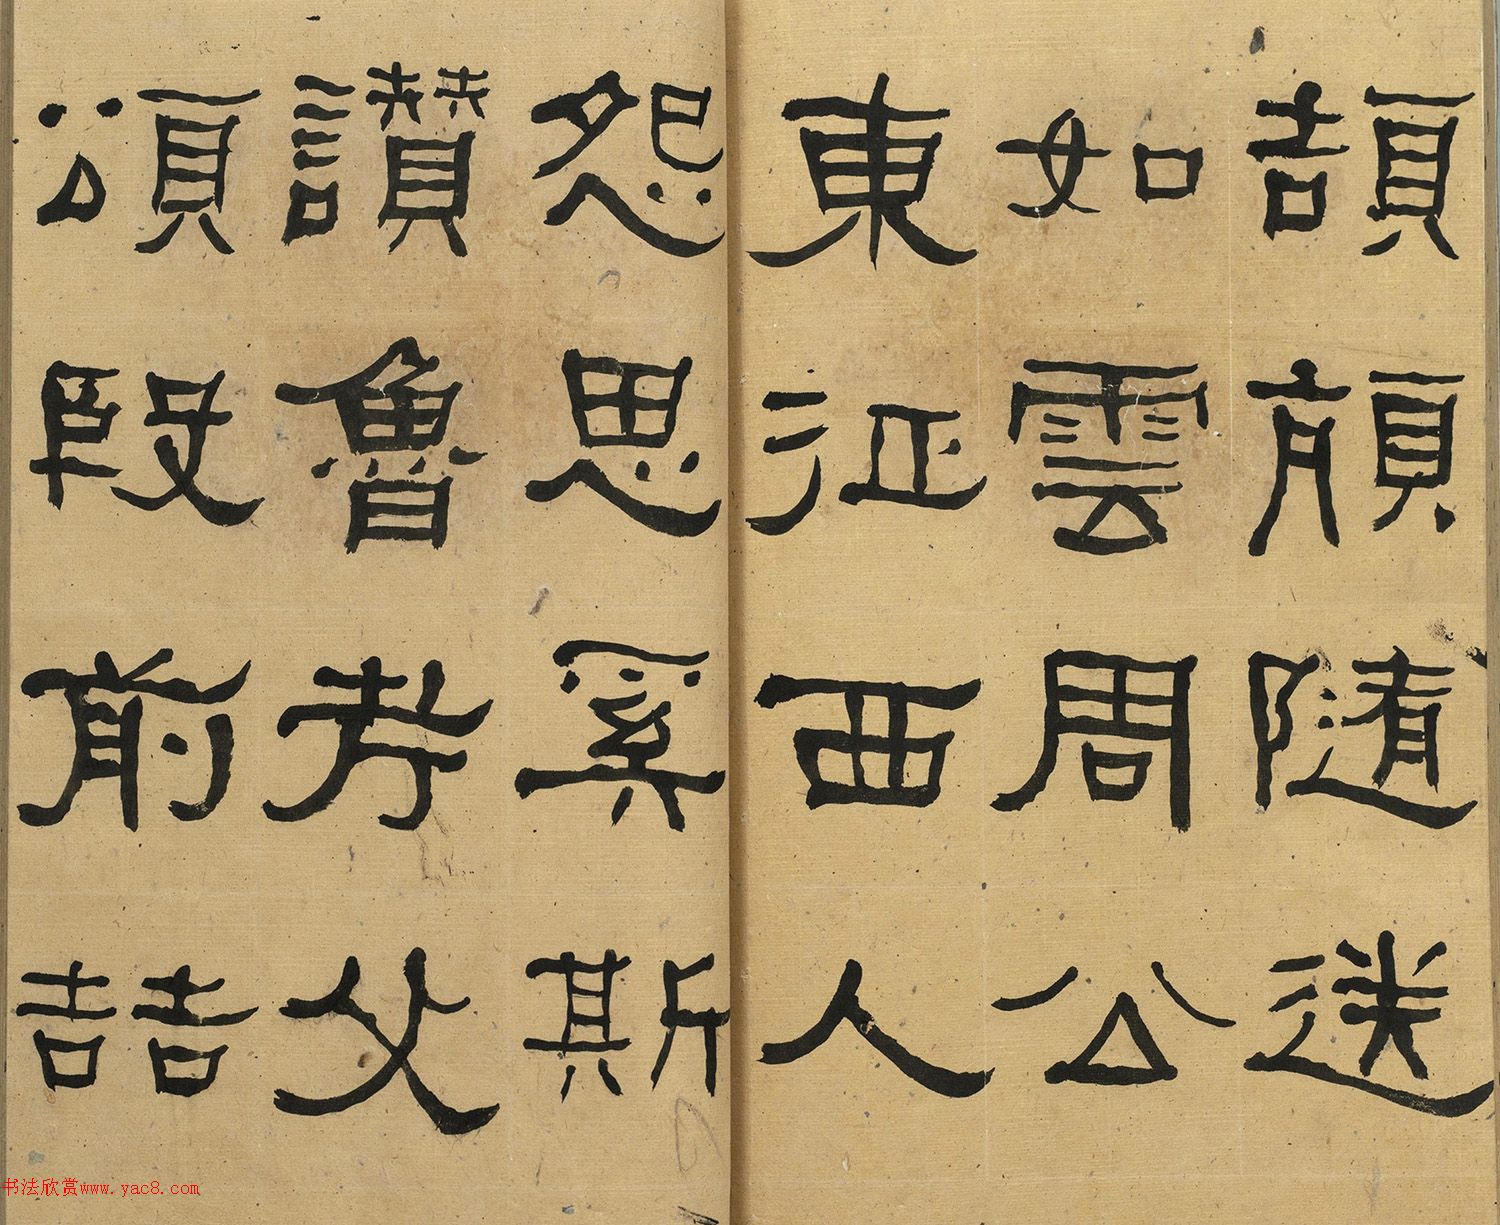 頡頏隨送
如雲周公
東征西人
怨思奚斯
讚魯考父
頌殷前喆
书法欣赏www.yac8.com